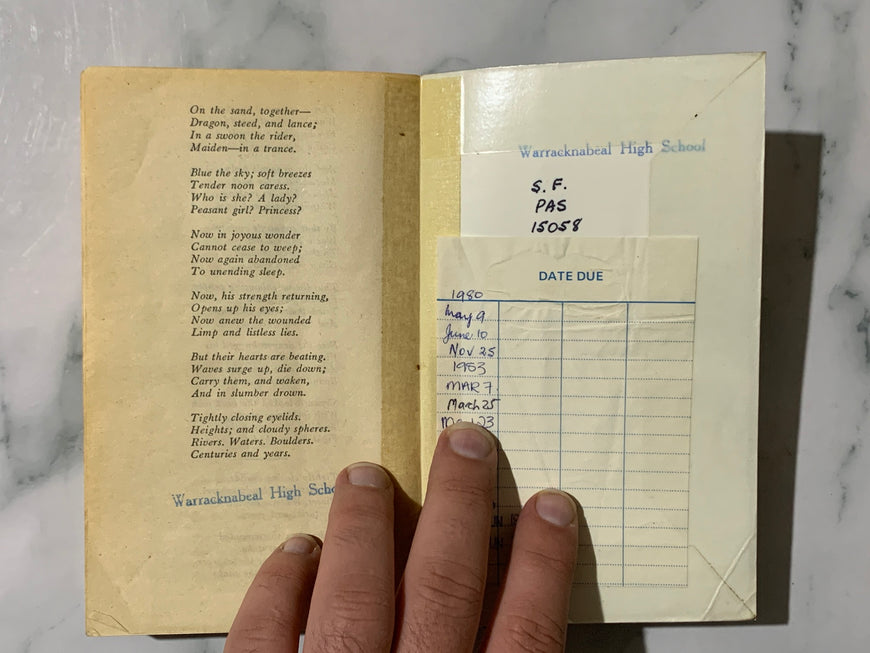 On the sand, together—
Dragon, steed, and lance;
In a swoon the rider,
Maiden—in a trance.
Blue the sky; soft breezes
Tender noon caress.
Who is she? A lady?
Peasant girl? Princess?
Now in joyous wonder
Cannot cease to weep;
Now again abandoned
To unending sleep.
Now, his strength returning,
Opens up his eyes;
Now anew the wounded
Limp and listless lies.
But their hearts are beating.
Waves surge up, die down;
Carry them, and waken,
And in slumber drown.
Tightly closing eyelids.
Heights; and cloudy spheres.
Rivers. Waters. Boulders.
Centuries and years.
Warracknabeal High
Warracknabeal High School
S. F.
PAS
15058
DATE DUE
1980
May 9
June 10
Nov 25
1983
MAR 7
March 25
23